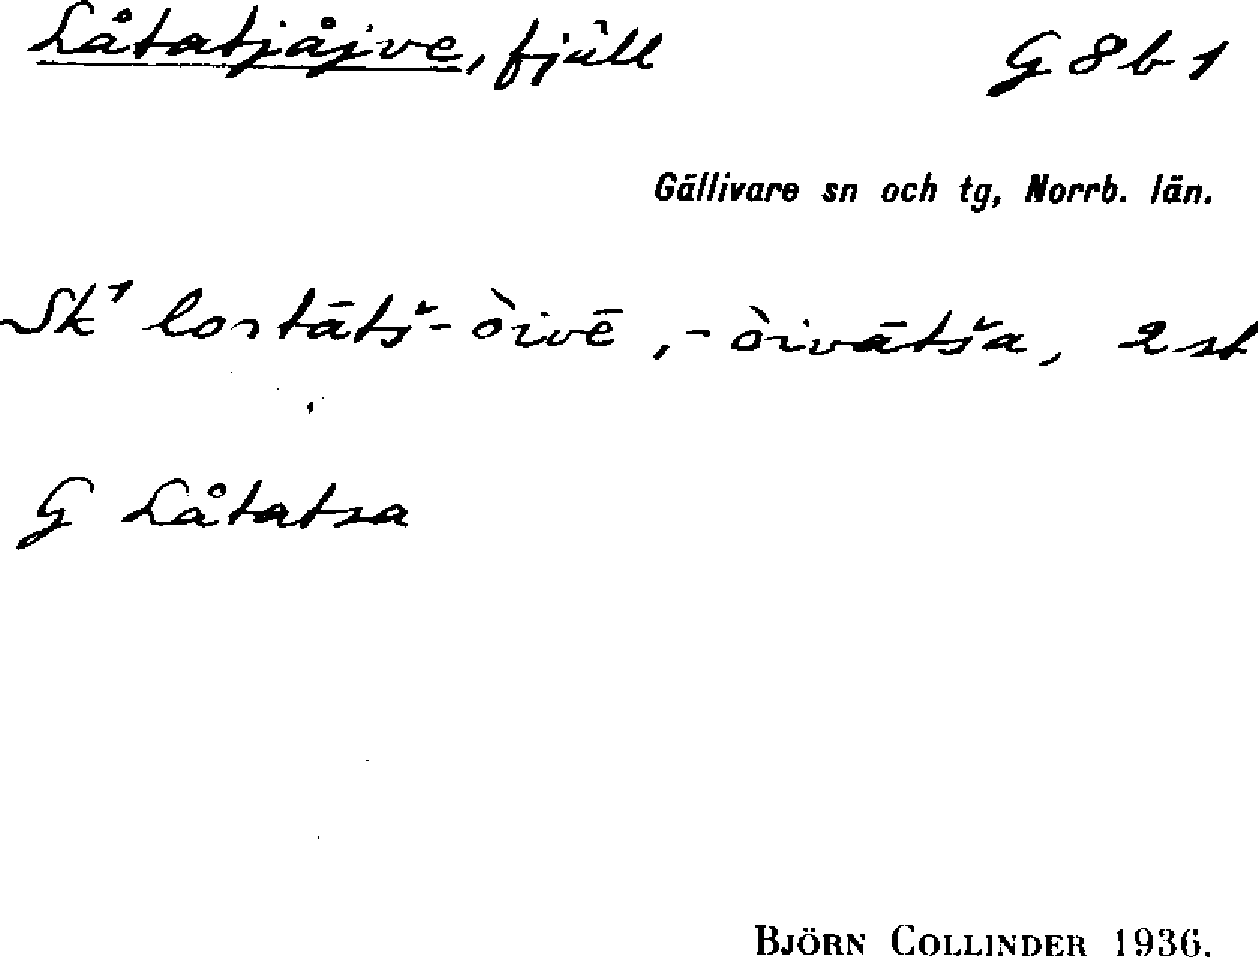 Låtatjåjve, fjäll G 8 b 1
Gällivare sn och tg, Norrb. län.
Sk¹ lostātš-òivē, -òivātša, 2 st
G Låtatsa
BJÖRN COLLINDER 1936.